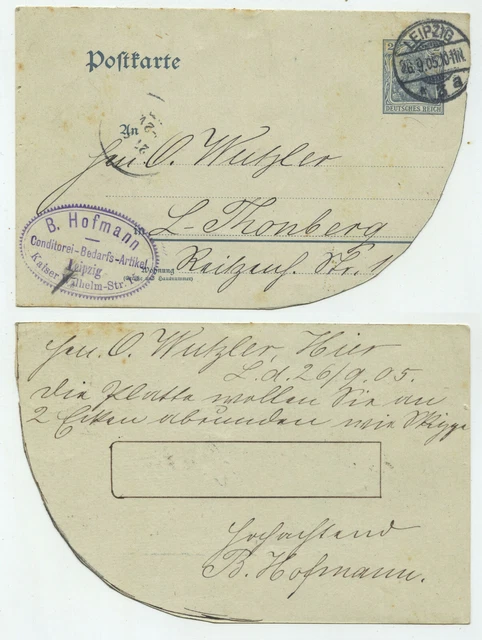 Postkarte
LEIPZIG
26.9.05.10-11N.
* 3 a
DEUTSCHES REICH
An
Hrn. O. Wutzler
L-Thonberg
Reitzenh. Str. 1
Wohnung
B. Hofmann
Conditorei-Bedarfs-Artikel
Leipzig
Kaiser Wilhelm-Str.
Hrn. O. Wutzler, Hier
L. d. 26/9. 05.
Die Platte wollen Sie an
2 Ecken abrunden wie Skizze
Hochachtend
B. Hofmann.